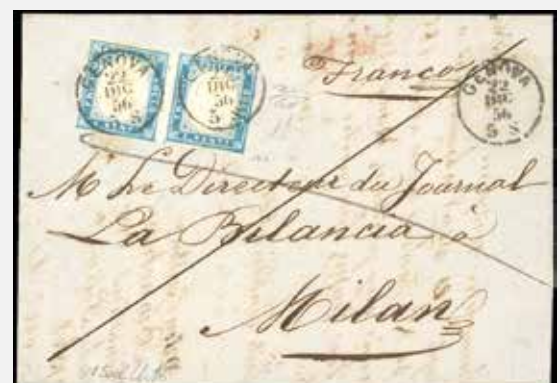 GENOVA
22
DIC
56
5 S
GENOVA
22
DIC
56
5 S
Franco
GENOVA
22
DIC
56
5 S
M Le Directeur du Journal
La Bilancia à
Milan